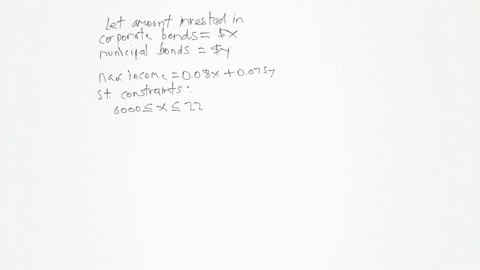 Let amount invested in
corporate bonds = $x
municipal bonds = $y
max income = 0.08x + 0.075y
st. constraints:
6000 ≤ x ≤ 22